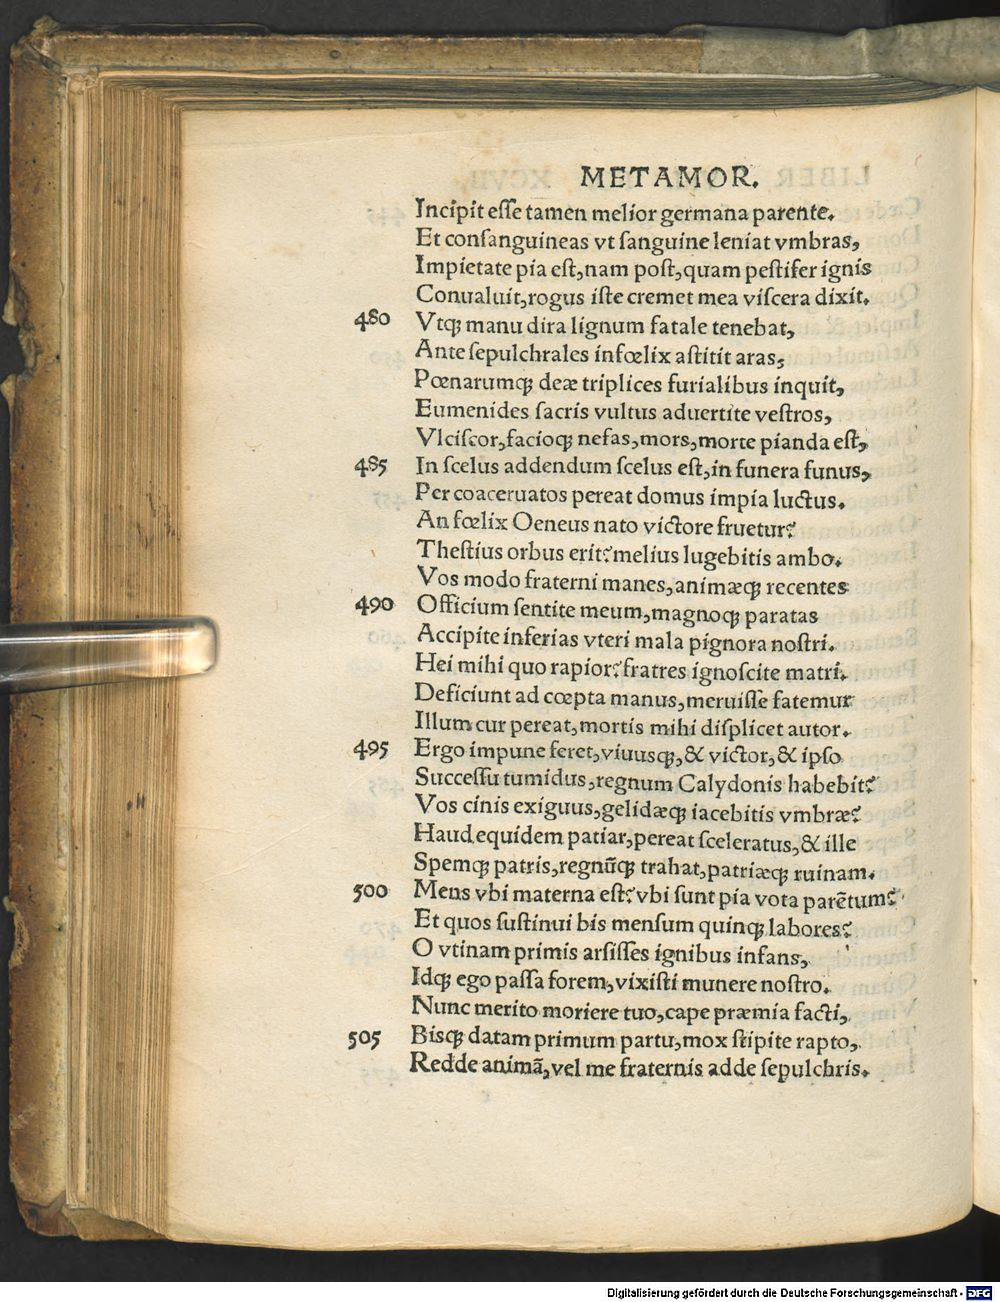 METAMOR.
Incipit esse tamen melior germana parente.
Et consanguineas vt sanguine leniat vmbras,
Impietate pia est, nam post, quam pestifer ignis
Conualuit, rogus iste cremet mea viscera dixit.
480 Vtq; manu dira lignum fatale tenebat,
Ante sepulchrales infœlix astitit aras,
Pœnarumq; deæ triplices furialibus inquit,
Eumenides sacris vultus aduertite vestros,
Vlciscor, facioq; nefas, mors, morte pianda est,
485 In scelus addendum scelus est, in funera funus,
Per coaceruatos pereat domus impia luctus.
An fœlix Oeneus nato victore fruetur?
Thestius orbus erit? melius lugebitis ambo.
Vos modo fraterni manes, animæq; recentes
490 Officium sentite meum, magnoq; paratas
Accipite inferias vteri mala pignora nostri.
Hei mihi quo rapior? fratres ignoscite matri.
Deficiunt ad cœpta manus, meruisse fatemur
Illum cur pereat, mortis mihi displicet autor.
495 Ergo impune feret, viuusq;, & victor, & ipso
Successu tumidus, regnum Calydonis habebit?
Vos cinis exiguus, gelidæq; iacebitis vmbræ?
Haud equidem patiar, pereat sceleratus, & ille
Spemq; patris, regnūq; trahat, patriæq; ruinam.
500 Mens vbi materna est? vbi sunt pia vota parētum?
Et quos sustinui bis mensum quinq; labores?
O vtinam primis arsisses ignibus infans,
Idq; ego passa forem, vixisti munere nostro.
Nunc merito moriere tuo, cape præmia facti,
505 Bisq; datam primum partu, mox stipite rapto,
Redde animā, vel me fraternis adde sepulchris.
Digitalisierung gefördert durch die Deutsche Forschungsgemeinschaft - DFG